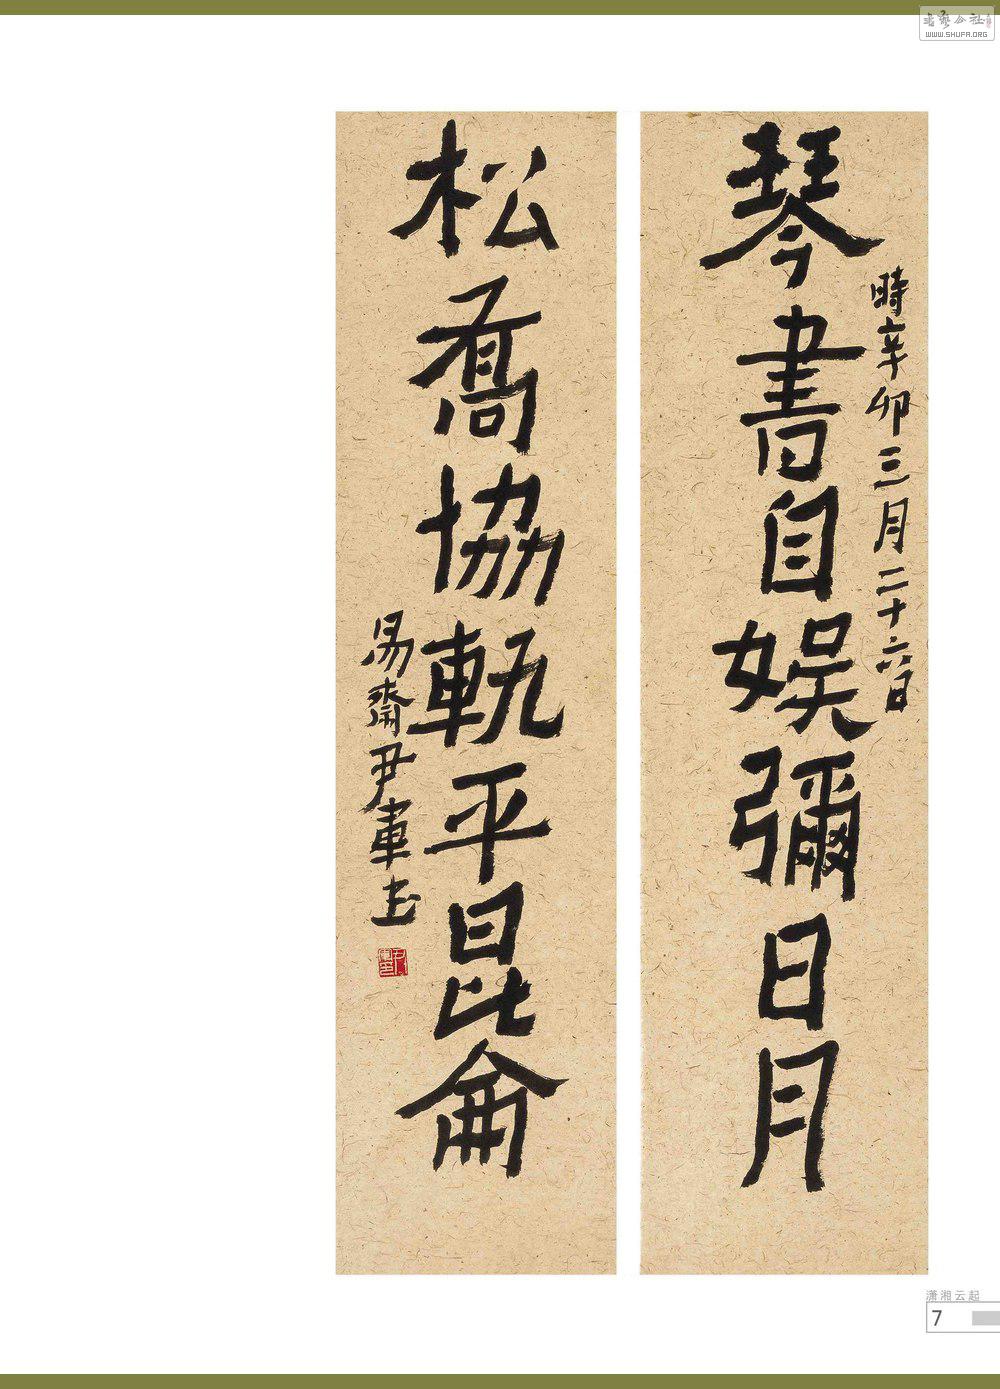 琴書自娛彌日月
時辛卯三月二十六日
松喬協軌平昆侖
易齋尹軍書
潇湘云起
7
WWW.SHUFA.ORG